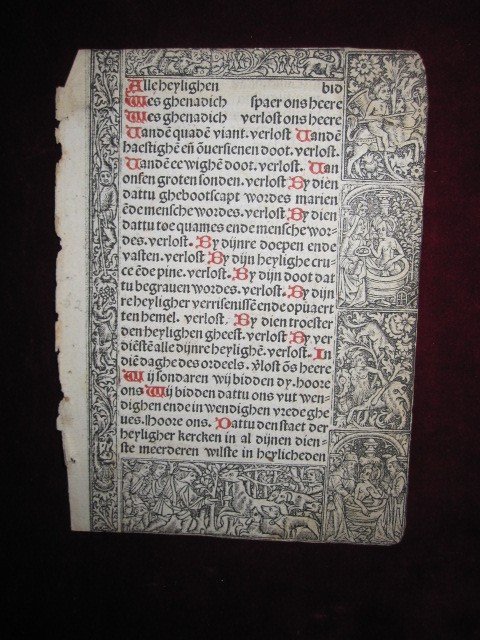 Alle heylighen bid
Wes ghenadich spaer ons heere
Wes ghenadich verlost ons heere
Vandē quadē viant. verlost Vandē
haestighē eñ ōuersienen doot. verlost.
Vandē ee wighē doot. verlost. Van
onsen groten sonden. verlost By dien
dattu ghebootscapt wordes marien
ēde mensche wordes. verlost. By dien
dattu toe quames ende mensche wor⸗
des. verlost. By dijnre doepen ende
vasten. verlost By dijn heylighe cru⸗
ce ēde pine. verlost. By dijn doot dat
tu begrauen wordes. verlost. By dijn
re heyligher verrisenisse ende opuaert
ten hemel. verlost. By dien troester
den heylighen gheest. verlost By ver
diēstē alle dijnre heylighē. verlost. In
diē daghe des ordeels. v̄lost ōs heere
Wij sondaren wij bidden dy. hoore
ons Wij bidden dattu ons vut wen⸗
dighen ende in wendighen vrede ghe
ues. Hoore ons. Dattu den staet der
heyligher kercken in al dijnen dien⸗
ste meerderen wilste in heylicheden